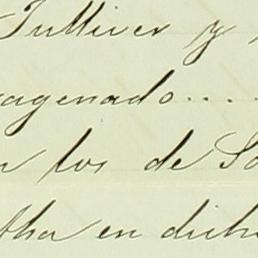 Tulliver y
agenado....
los de Sa
tha en dicho